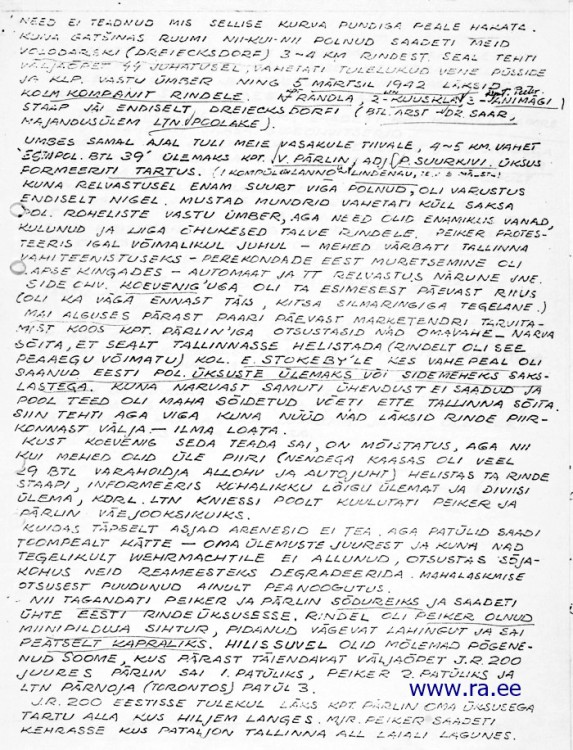 NEED EI TEADNUD MIS SELLISE KURVA PUNDIGA PEALE HAKATA.
KUNA GATŠINAS RUUMI NII-KUI-NII POLNUD SAADETI MEID
VOLODARSKI (DREIECKSDORF) 3-4 KM RINDEST. SEAL TEHTI
VÄLJAÕPET JUHATUSEL, VAHETATI TULELUKUD VENE PÜSSIDE
JA KLP. VASTU ÜMBER NING 5 MÄRTSIL 1942 LÄKSID
KOLM KOMPANIT RINDELE. RANDLA, 2- KUUSKLA, 3- TÄNIMÄGI)
STAAP JÄI ENDISELT DREIECKSDORFI (BTL. ARST DR. SAAR,
MAJANDUSÜLEM LTN POOLAKE).
UMBES SAMAL AJAL TULI MEIE VASAKULE TIIVALE, 4-5 KM. VAHET
POL. BTL 39" ÜLEMAKS KPT. V. PÄRLIN, ADJ P. SUURKIVI. ÜKSUS
FORMEERITI TARTUS. (1 KOMP. ÜL. LINDENAU,
KUNA RELVASTUSEL ENAM SUURT VIGA POLNUD, OLI VARUSTUS
ENDISELT NIGEL. MUSTAD MUNDRID VAHETATI KÜLL SAKSA
POL. ROHELISTE VASTU ÜMBER, AGA NEED OLID ENAMIKLIS VANAD,
KULUNUD JA LIIGA ÕHUKESED TALVE RINDELE. PEIKER PROTES-
TEERIS IGAL VÕIMALIKUL JUHUL - MEHED VÄRBATI TALLINNA
VAHITEENISTUSEKS - PEREKONDADE EEST MURETSEMINE OLI
LAPSE KINGADES - AUTOMAAT JA TT RELVASTUS NÄRUNE JNE.
SIDEOHV. KOEVENIG'UGA, OLI TA ESIMESEST PÄEVAST RIIUS
(OLI KA VÄGA ENNAST TÄIS, KITSA SILMARINGIGA TEGELANE.)
MAI ALGUSES PÄRAST PAARI PÄEVAST MARKETENDRI TARVITA-
MIST KOOS KPT. PÄRLIN'IGA OTSUSTASID NAD OMAVAHE - NARVA
SÕITA, ET SEALT TALLINNASSE HELISTADA (RINDELT OLI SEE
PEAAEGU VÕIMATU) KOL. E. STOKEBY'LE KES VAHEPEAL OLI
SAANUD EESTI POL. ÜKSUSTE ÜLEMAKS VÕI SIDEMEHEKS SAKS-
LASTEGA. KUNA NARVAST SAMUTI ÜHENDUST EI SAADUD JA
POOL TEED OLI MAHA SÕIDETUD VÕETI ETTE TALLINNA SÕITA.
SIIN TEHTI AGA VIGA KUNA NÜÜD NAD LÄKSID RINDE PIIR-
KONNAST VÄLJA - ILMA LOATA.
KUST KOEVENIG SEDA TEADA SAI, ON MÕISTATUS, AGA NII
KUI MEHED OLID ÜLE PIIRI (NENDEGA KAASAS OLI VEEL
29 BTL VARAHOIDJA ALLOHU JA AUTOJUHT) HELISTAS TA RINDE
STAAPI, INFORMEERIS KOHALIKKU LÕIGU ÜLEMAT JA DIVIISI
ÜLEMA, KDRL. LTN KNIESSI POOLT KUULUTATI PEIKER JA
PÄRLIN VÄEJOOKSIKUIKS.
KUIDAS TÄPSELT ASJAD ARENESID EI TEA. AGA PATÜLID SAADI
TOOMPEALT KÄTTE - OMA ÜLEMUSTE JUUREST JA KUNA NAD
TEGELIKULT WEHRMACHTILE EI ALLUNUD, OTSUSTAS SÕJA-
KOHUS NEID REAMEESTEKS DEGRADEERIDA. MAHALASKMISE
OTSUSEST PUUDUNUD AINULT PEANOOGUTUS.
NII TAGANDATI PEIKER JA PÄRLIN SÕDUREIKS JA SAADETI
ÜHTE EESTI RINDEÜKSUSESSE. RINDEL OLI PEIKER OLNUD
MIINIPILDUJA SIHTUR, PIDANUD VÄGEVAT LAHINGUT JA SAI
PEATSELT KAPRALIKS. HILISSUVEL OLID MÕLEMAD PÕGENE-
NUD SOOME, KUS PÄRAST TÄIENDAVAT VÄLJAÕPET J.R. 200
JUURES PÄRLIN SAI 1. PATÜLIKS, PEIKER 2. PATÜLIKS JA
LTN PÄRNOJA (TORONTOS) PATÜL 3.
J.R. 200 EESTISSE TULEKUL LÄKS KPT. PÄRLIN OMA ÜKSUSEGA
TARTU ALLA KUS HILJEM LANGES. MJR. PEIKER SAADETI
KEHRASSE KUS PATALJON TALLINNA ALL LAIALI LAGUNES.
www.ra.ee